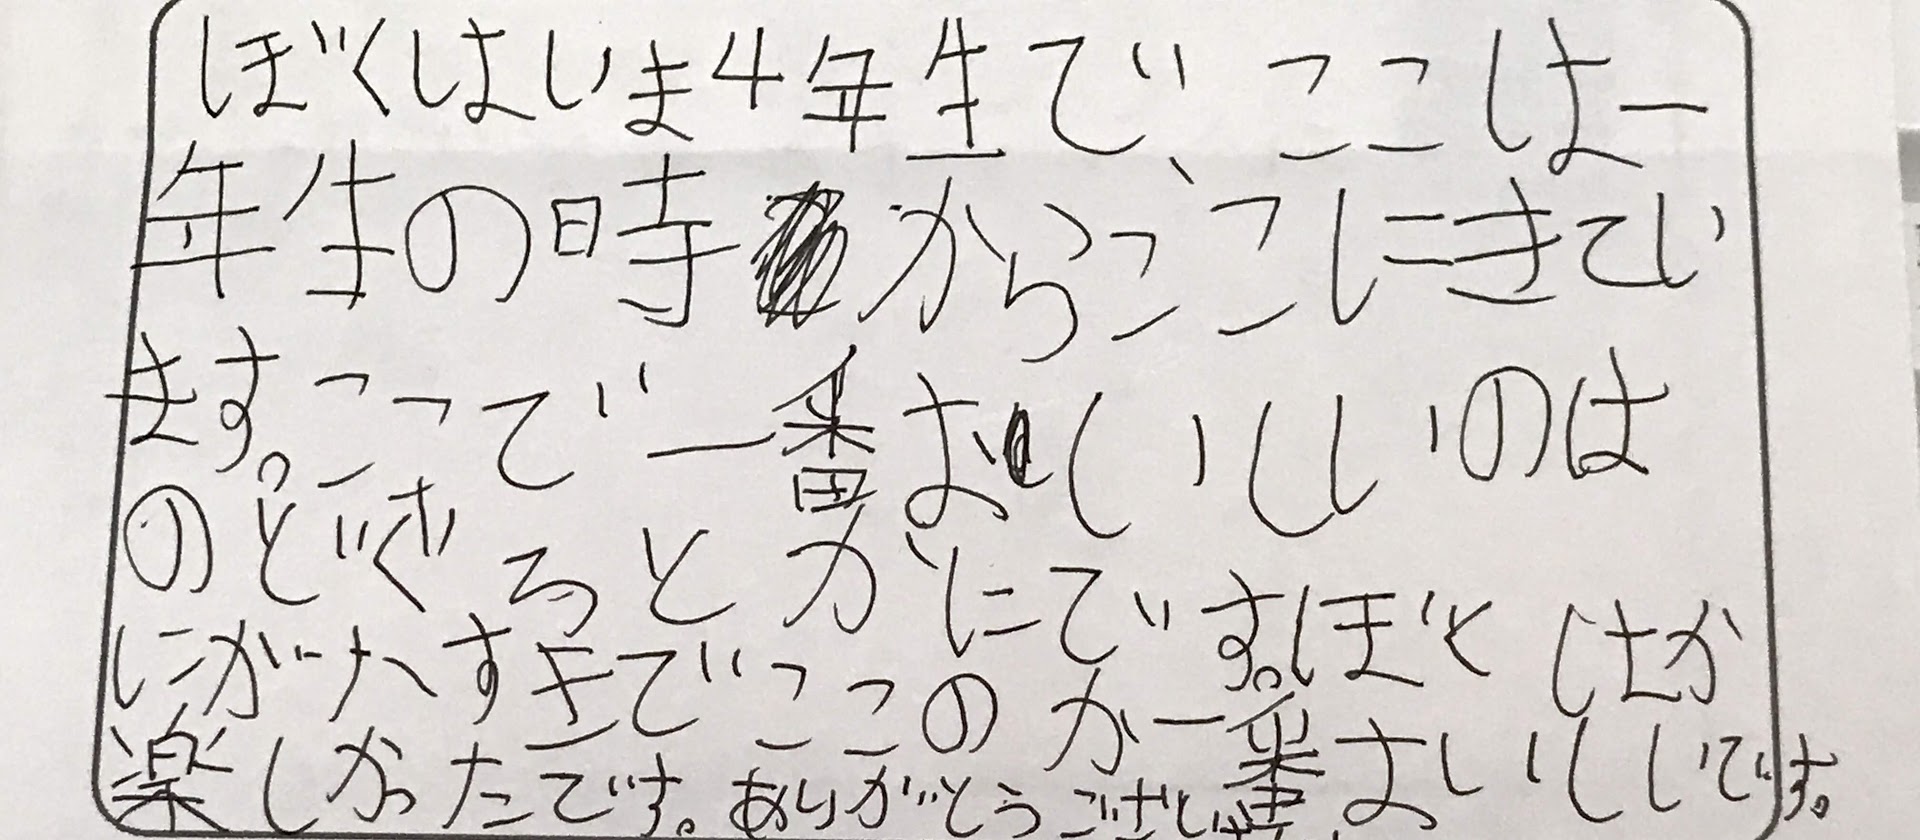 ぼくはいま4年生で、ここは一
年生の時からここにきてい
ます。ここで一番おいしいのは
のどぐろとカニです。ぼくはか
にが大すきでここのが一番おいしいです。
楽しかったです。ありがとうござい